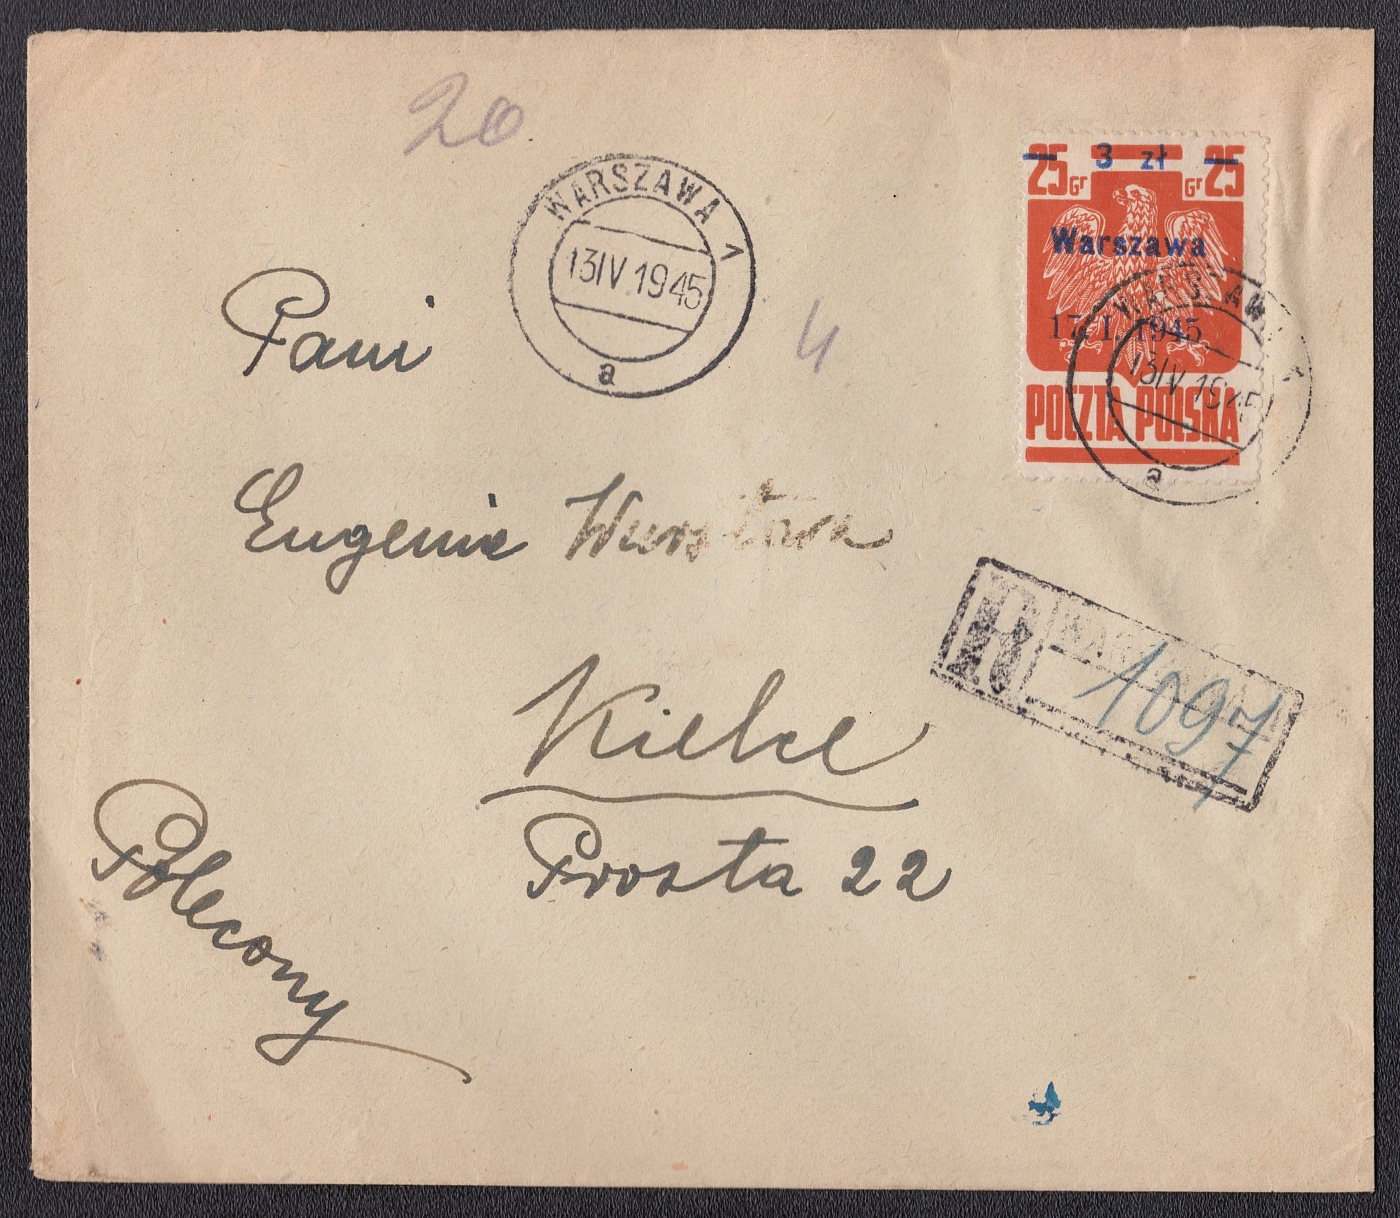 20
WARSZAWA 1
13 IV 1945
a
4
25 Gr 3 zł Gr 25
Warszawa
17. I. 1945
POCZTA POLSKA
WARSZAWA 1
13 IV 1945
a
Pani
Eugenia
Kielce
Prosta 22
Polecony
R WARSZAWA
1097